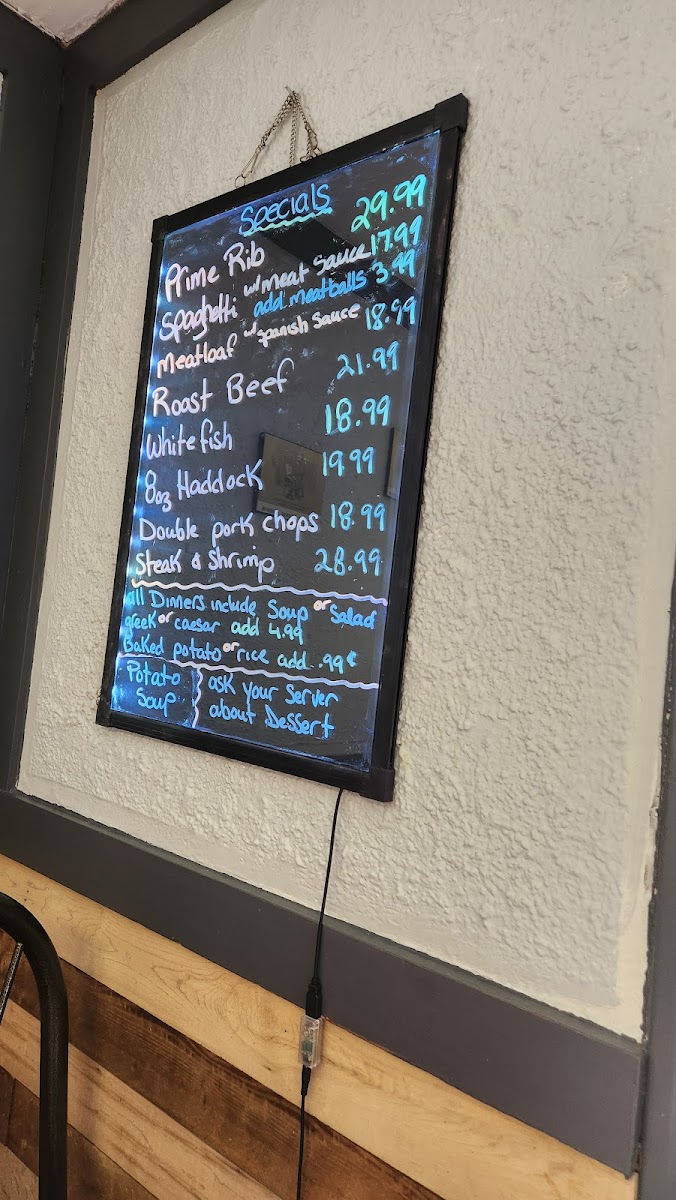 Specials
Prime Rib 29.99
Spaghetti w/ meat sauce 17.99
add meatballs 3.99
meatloaf w/ spanish sauce 18.99
Roast Beef 21.99
White fish 18.99
8oz Haddock 19.99
Double pork chops 18.99
Steak & Shrimp 28.99
all Dinners include Soup or Salad
greek or caesar add 4.99
Baked potato or rice add .99¢
Potato
Soup
ask your Server
about Dessert